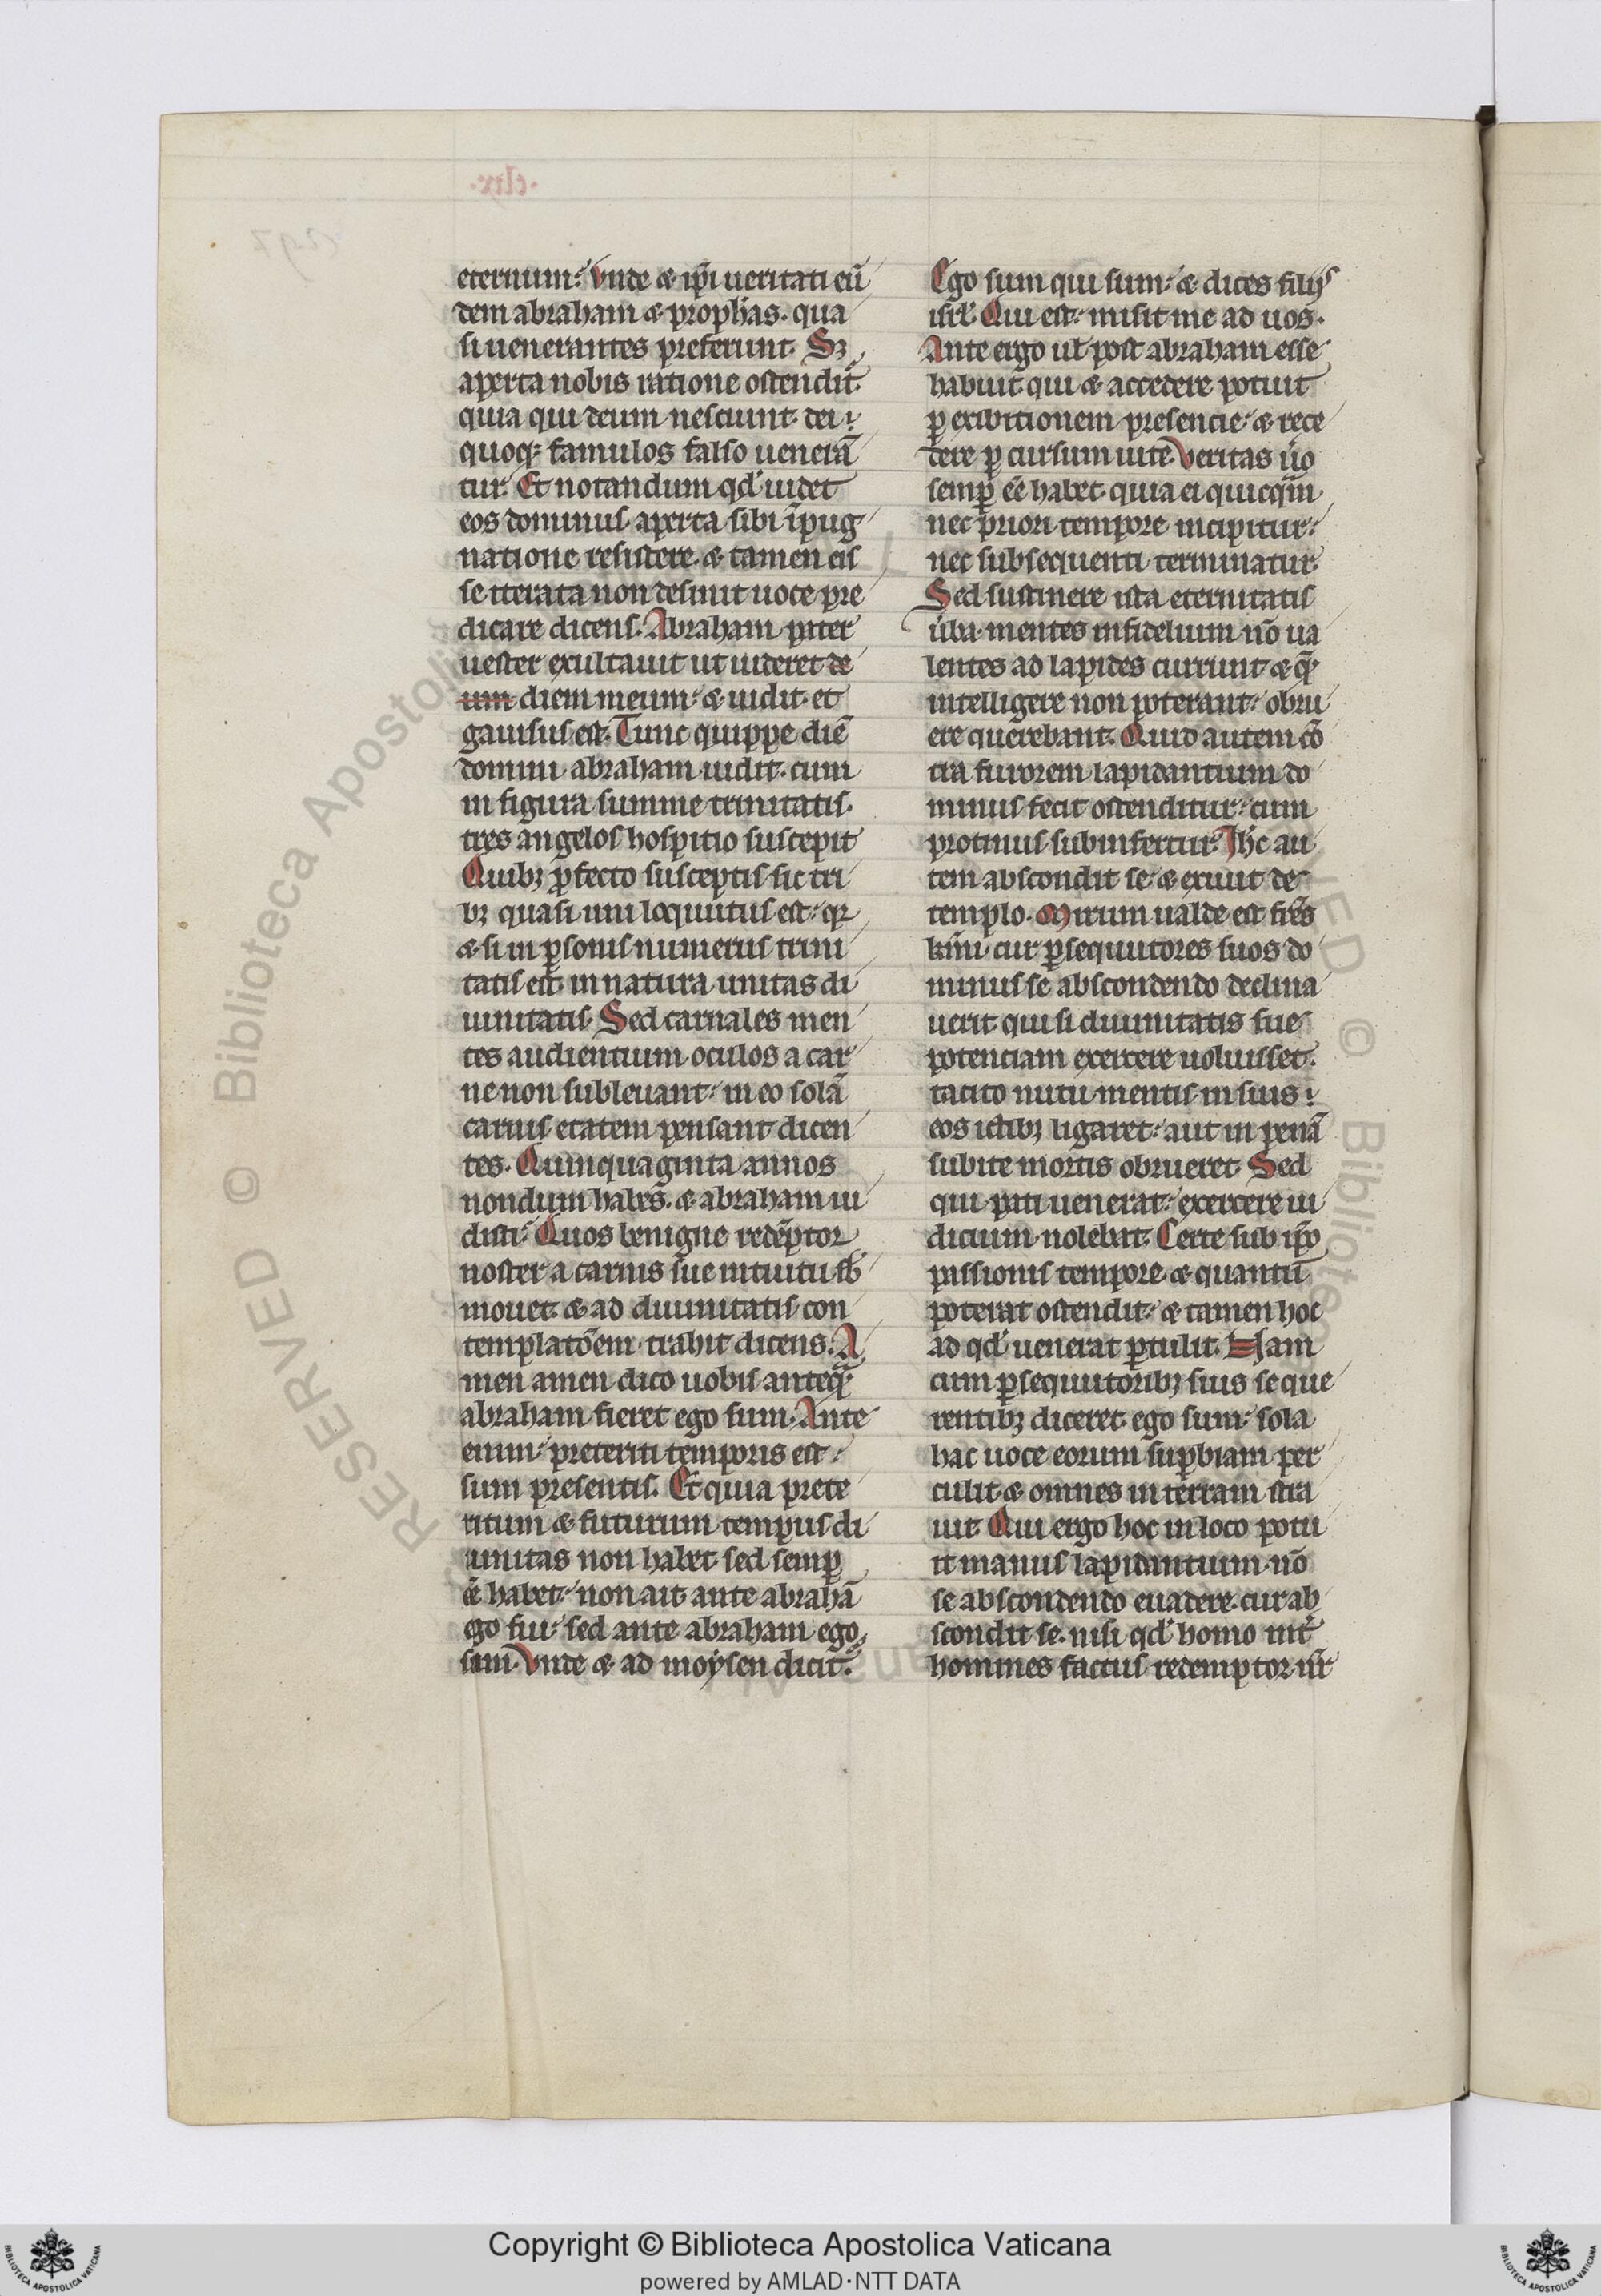 eternum. Vnde & ip̄i ueritati eū
dem abraham & proph̄as. qua
si uenerantes preferunt. Sꝫ
aperta nobis ratione ostendit.
quia qui deum nesciunt. dei
quoqꝫ famulos falso uenerā
tur. Et notandum qđ uidet
eos dominus aperta sibi īpug
natione resistere. & tamen eis
se iterata non desinit uoce pre
dicare dicens. Abraham pater
uester exultauit ut uideret de
um diem meum. & uidit. et
gauisus est. Tunc quippe diē
domini abraham uidit. cum
in figura summe trinitatis.
tres angelos hospitio suscepit
Quibꝫ ꝓfecto susceptis sic tri
bꝫ quasi uni loquutus est. qꝛ
& si in ꝑsonis numerus trini
tatis est. in natura unitas di
uinitatis. Sed carnales men
tes audientium oculos a car
ne non subleuant. in eo solā
carnis etatem pensant dicen
tes. Quinquaginta annos
nondum habes. & abraham ui
disti. Quos benigne redēptor
noster a carnis sue intuitu sb̄
mouet. & ad diuinitatis con
templatōem trahit dicens. A
men amen dico uobis anteq̄
abraham fieret ego sum. Ante
enim preteriti temporis est.
sum presentis. Et quia prete
ritum & futurum tempus di
uinitas non habet sed semꝑ
eē habet. non ait ante abrahā
ego fui. sed ante abraham ego
sum. Vnde & ad moysen dicit.
Ego sum qui sum. & dices filijs
isrl. Qui est. misit me ad uos.
Ante ergo ul post abraham esse
habuit qui & accedere potuit
ꝑ exibitionem presencie. & rece
dere ꝑ cursum uite. Veritas ūo
semꝑ eē habet. quia ei quicq̄m
nec priori tempore incipitur.
nec subsequenti terminatur.
Sed sustinere ista eternitatis
ūba. mentes infidelium nō ua
lentes ad lapides currunt & q̄
intelligere non poterant. obru
ere querebant. Quid autem cō
tra furorem lapidantium do
minus fecit ostenditur. cum
protinus subinfertur. Ih̄c au
tem abscondit se. & exiuit de
templo. Mirum ualde est fr̄es
km̄i. cur ꝑsequutores suos do
minus se abscondendo declina
uerit qui si diuinitatis sue
potenciam exercere uoluisset.
tacito nutu mentis in suis
eos ictibꝫ ligaret. aut in penā
subite mortis obrueret. Sed
qui pati uenerat. exercere iu
dicium nolebat. Certe sub ip̄o
passionis tempore & quantū
poterat ostendit. & tamen hoc
ad qđ uenerat ꝑtulit. Nam
cum ꝑsequutoribꝫ suis se que
rentibꝫ diceret. ego sum. sola
hac uoce eorum suꝑbiam per
culit & omnes in terram stra
uit. Qui ergo hoc in loco potu
it manus lapidantium nō
se abscondendo euadere. cur ab
scondit se. nisi qđ homo int̄
homines factus redemptor nr̄
Copyright © Biblioteca Apostolica Vaticana
powered by AMLAD·NTT DATA